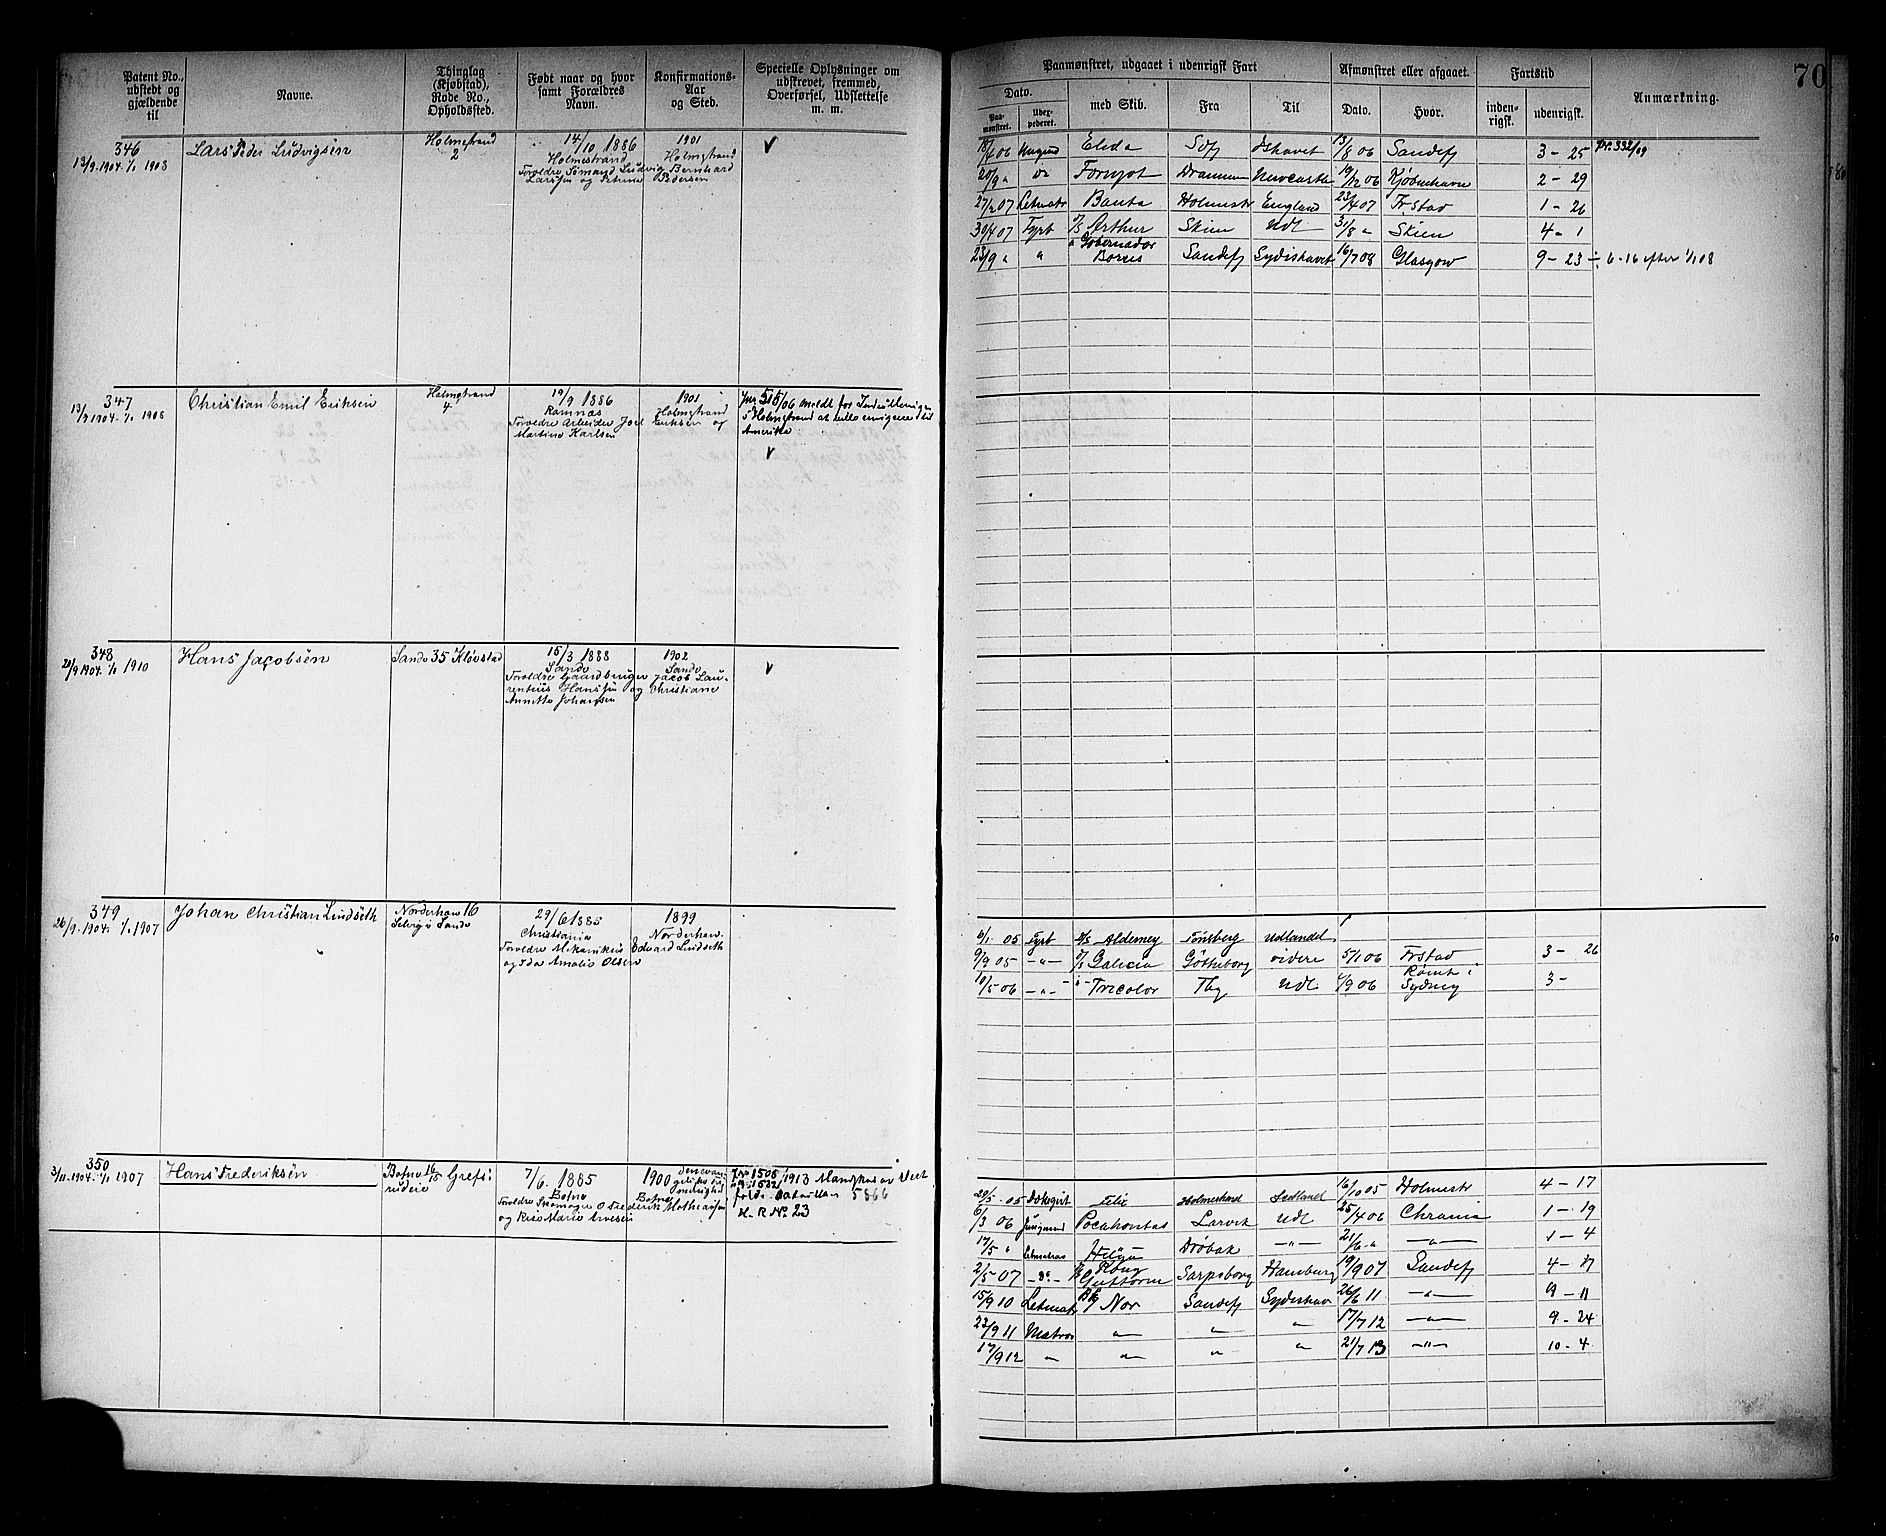 70
Patent No., udstedt og gjældende til
Navne.
Thinglag (Kjøbstad), Rode No., Opholdssted.
Født naar og hvor samt Forældres Navn.
Konfirmations-Aar og Sted.
Specielle Oplysninger om udskrevet, fremmed, Overførsel, Udslettelse m. m.
Paamønstret, udgaaet i udenrigsk Fart
Afmønstret eller afgaaet.
Fartstid
Anmærkning.
Dato.
med Skib.
Fra
Til
Dato.
Hvor.
inden-rigsk.
udenrigsk.
Paa-mønstret.
346
13/9 1904. 1/1 1908
Lars Peder Ludvigsen
Holmestrand
2
14/10 1886
Holmestrand
Forældre Sømand Ludvig Bernhard
Larssen og Petrine Pedersen
1901
Holmestrand
18/4 06 Elida Sdfj Ishavet 13/8 06 Sandefj 3 - 25 Nr. 332/09
20/9 " Fornjot Drammen Newcastle 19/12 06 Kjøbenhavn 2 - 29
27/2 07 Letmatr Banta Holmestr England 23/4 07 Fr.stad 1 - 26
30/4 07 Fyrb D/S Arthur Skien Udl 31/8 " Skien 4 - 1
23/9 " " " Gobernador Bories Sandefj Sydishavet 16/7 08 Glasgow 9 - 23 ÷ 6-16 efter 1/1 08
347
13/9 1904. 1/1 1908
Christian Emil Eriksen
Holmestrand
4
19/9 1886
Ramnes
Forældre Arbeider Joel Eriksen og
Martine Karlsen
1901
Holmestrand
Jnr 515/06 meldt for Indrulleringen
i Holmestrand at ville emigrere til
Amerika
348
20/9 1904. 1/1 1910
Hans Jacobsen
Sande 35 Kløvstad
15/3 1888
Sande
Forældre Gaardbruger Jacob Lau-
rentius Hansen og Christiane
Annette Johansen
1902
Sande
349
26/9 1904. 1/1 1907
Johan Christian Lindseth
Norderhov 16
Selvig i Sande
29/6 1885
Christiania
Forældre Mekanikus Edvard Lindseth
og Ida Amalie Olsen
1899
Norderhov.
6/1 05 Fyrb D/S Alderney Tønsberg Udlandet
9/9 05 -"- D/S Galicia Götheborg videre 5/1 06 Frstad 3 - 26
10/5 06 -"- -"- Tricolor Tbg Udl 1/9 06 Rømt i Sydney 3 -
350
3/11 1904. 1/1 1907
Hans Frederiksen
Botne 16/15 Grefs-
rudeie
7/6. 1885
Botne
Forældre Skomager O Frederik Mathiassen
og Risø Marie Arvesen
1900
Botne
Jnr 1506
1532/1913 Mandskap av slect
5866
H.R No 23
20/5 05 Dæksgut Felix Holmestrand Østlandet 16/10 05 Holmestr 4 - 17
6/3 06 Jungmand Pocahontas Larvik Udl 25/4 06 Chrania 1 - 19
17/5 " Letmatros Helga Drøbak -"- 21/6 " -"- 1 - 4
2/5 07 -do- Kong Guttorm Sarpsborg Hamburg 19/9 07 Sandefj 4 - 17
15/9 10 Letmatr Nor Sandefj Sydishav 26/6 11 -"- 9 - 11
23/9 11 Matros " " " 17/7 12 -"- 9 - 24
17/9 12 " " " " 21/7 13 -"- 10 - 4